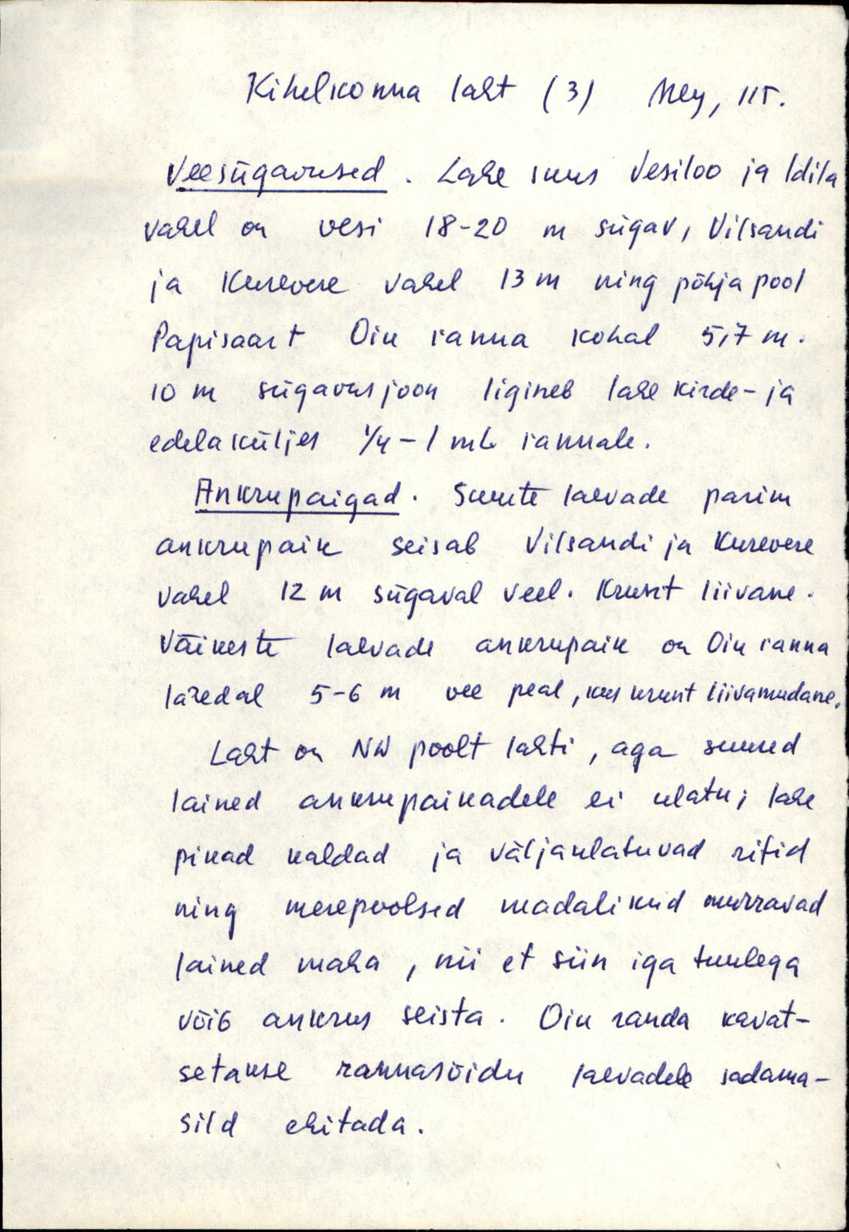 Kihelkonna laht (3) Mey, 115.
Veesügavused. Lahe suus Vesiloo ja Idila
vahel on vesi 18-20 m sügav, Vilsandi
ja Kurevere vahel 13 m ning põhja pool
Papisaart Oiu ranna kohal 5,7 m.
10 m sügavusjoon ligineb lahe kirde- ja
edelaküljes 1/4 - 1 mL rannale.
Ankrupaigad. Suurte laevade parim
ankrupaik seisab Vilsandi ja Kurevere
vahel 12 m sügaval veel. Krunt liivane.
Väikeste laevade ankrupaik on Oiu ranna
lähedal 5-6 m vee peal, kus krunt liivamudane.
Laht on NW poolt lahti, aga suured
lained ankrupaikadele ei ulatu; lahe
pikad kaldad ja väljaulatuvad rifid
ning merepoolsed madalikud murravad
lained maha, nii et siin iga tuulega
võib ankrus seista. Oiu randa kavat-
setakse rannasõidu laevadele sadama-
sild ehitada.